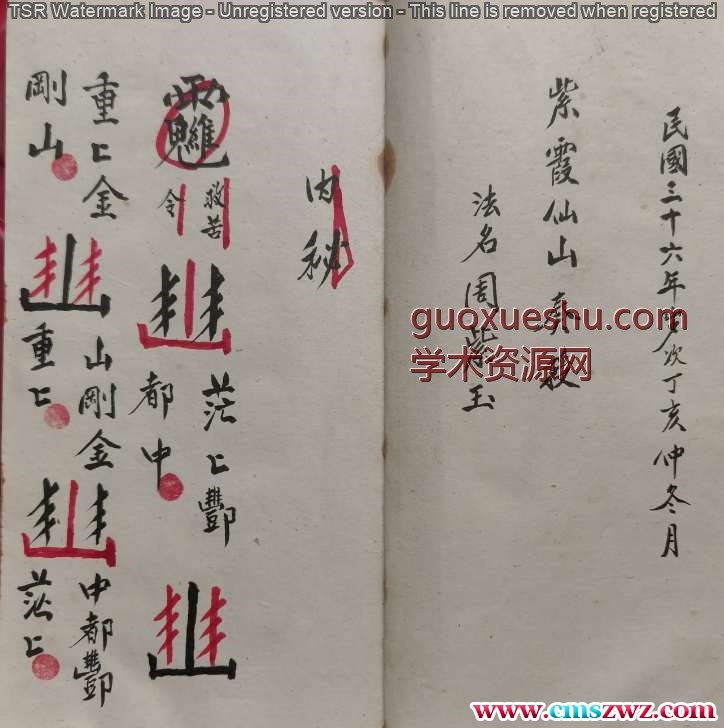 TSR Watermark Image - Unregistered version - This line is removed when registered
民國三十六年歲次丁亥仲冬月
紫霞仙山
法名周紫玉
guoxueshu.com
学术资源网
内秘
救苦
令
茫〻酆
都中
重〻金
剛山
山剛金
重〻
中都酆
茫〻
www.cmszwz.com